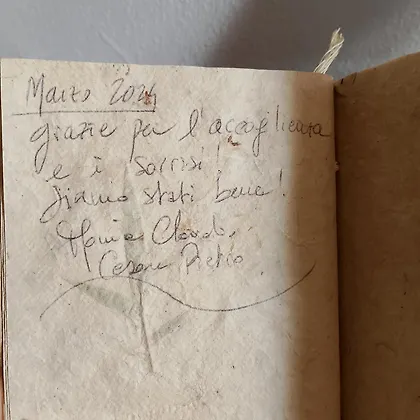 Marzo 2024
grazie per l'accoglienza
e i sorrisi!
siamo stati bene!
Maria
Cesare Pietro